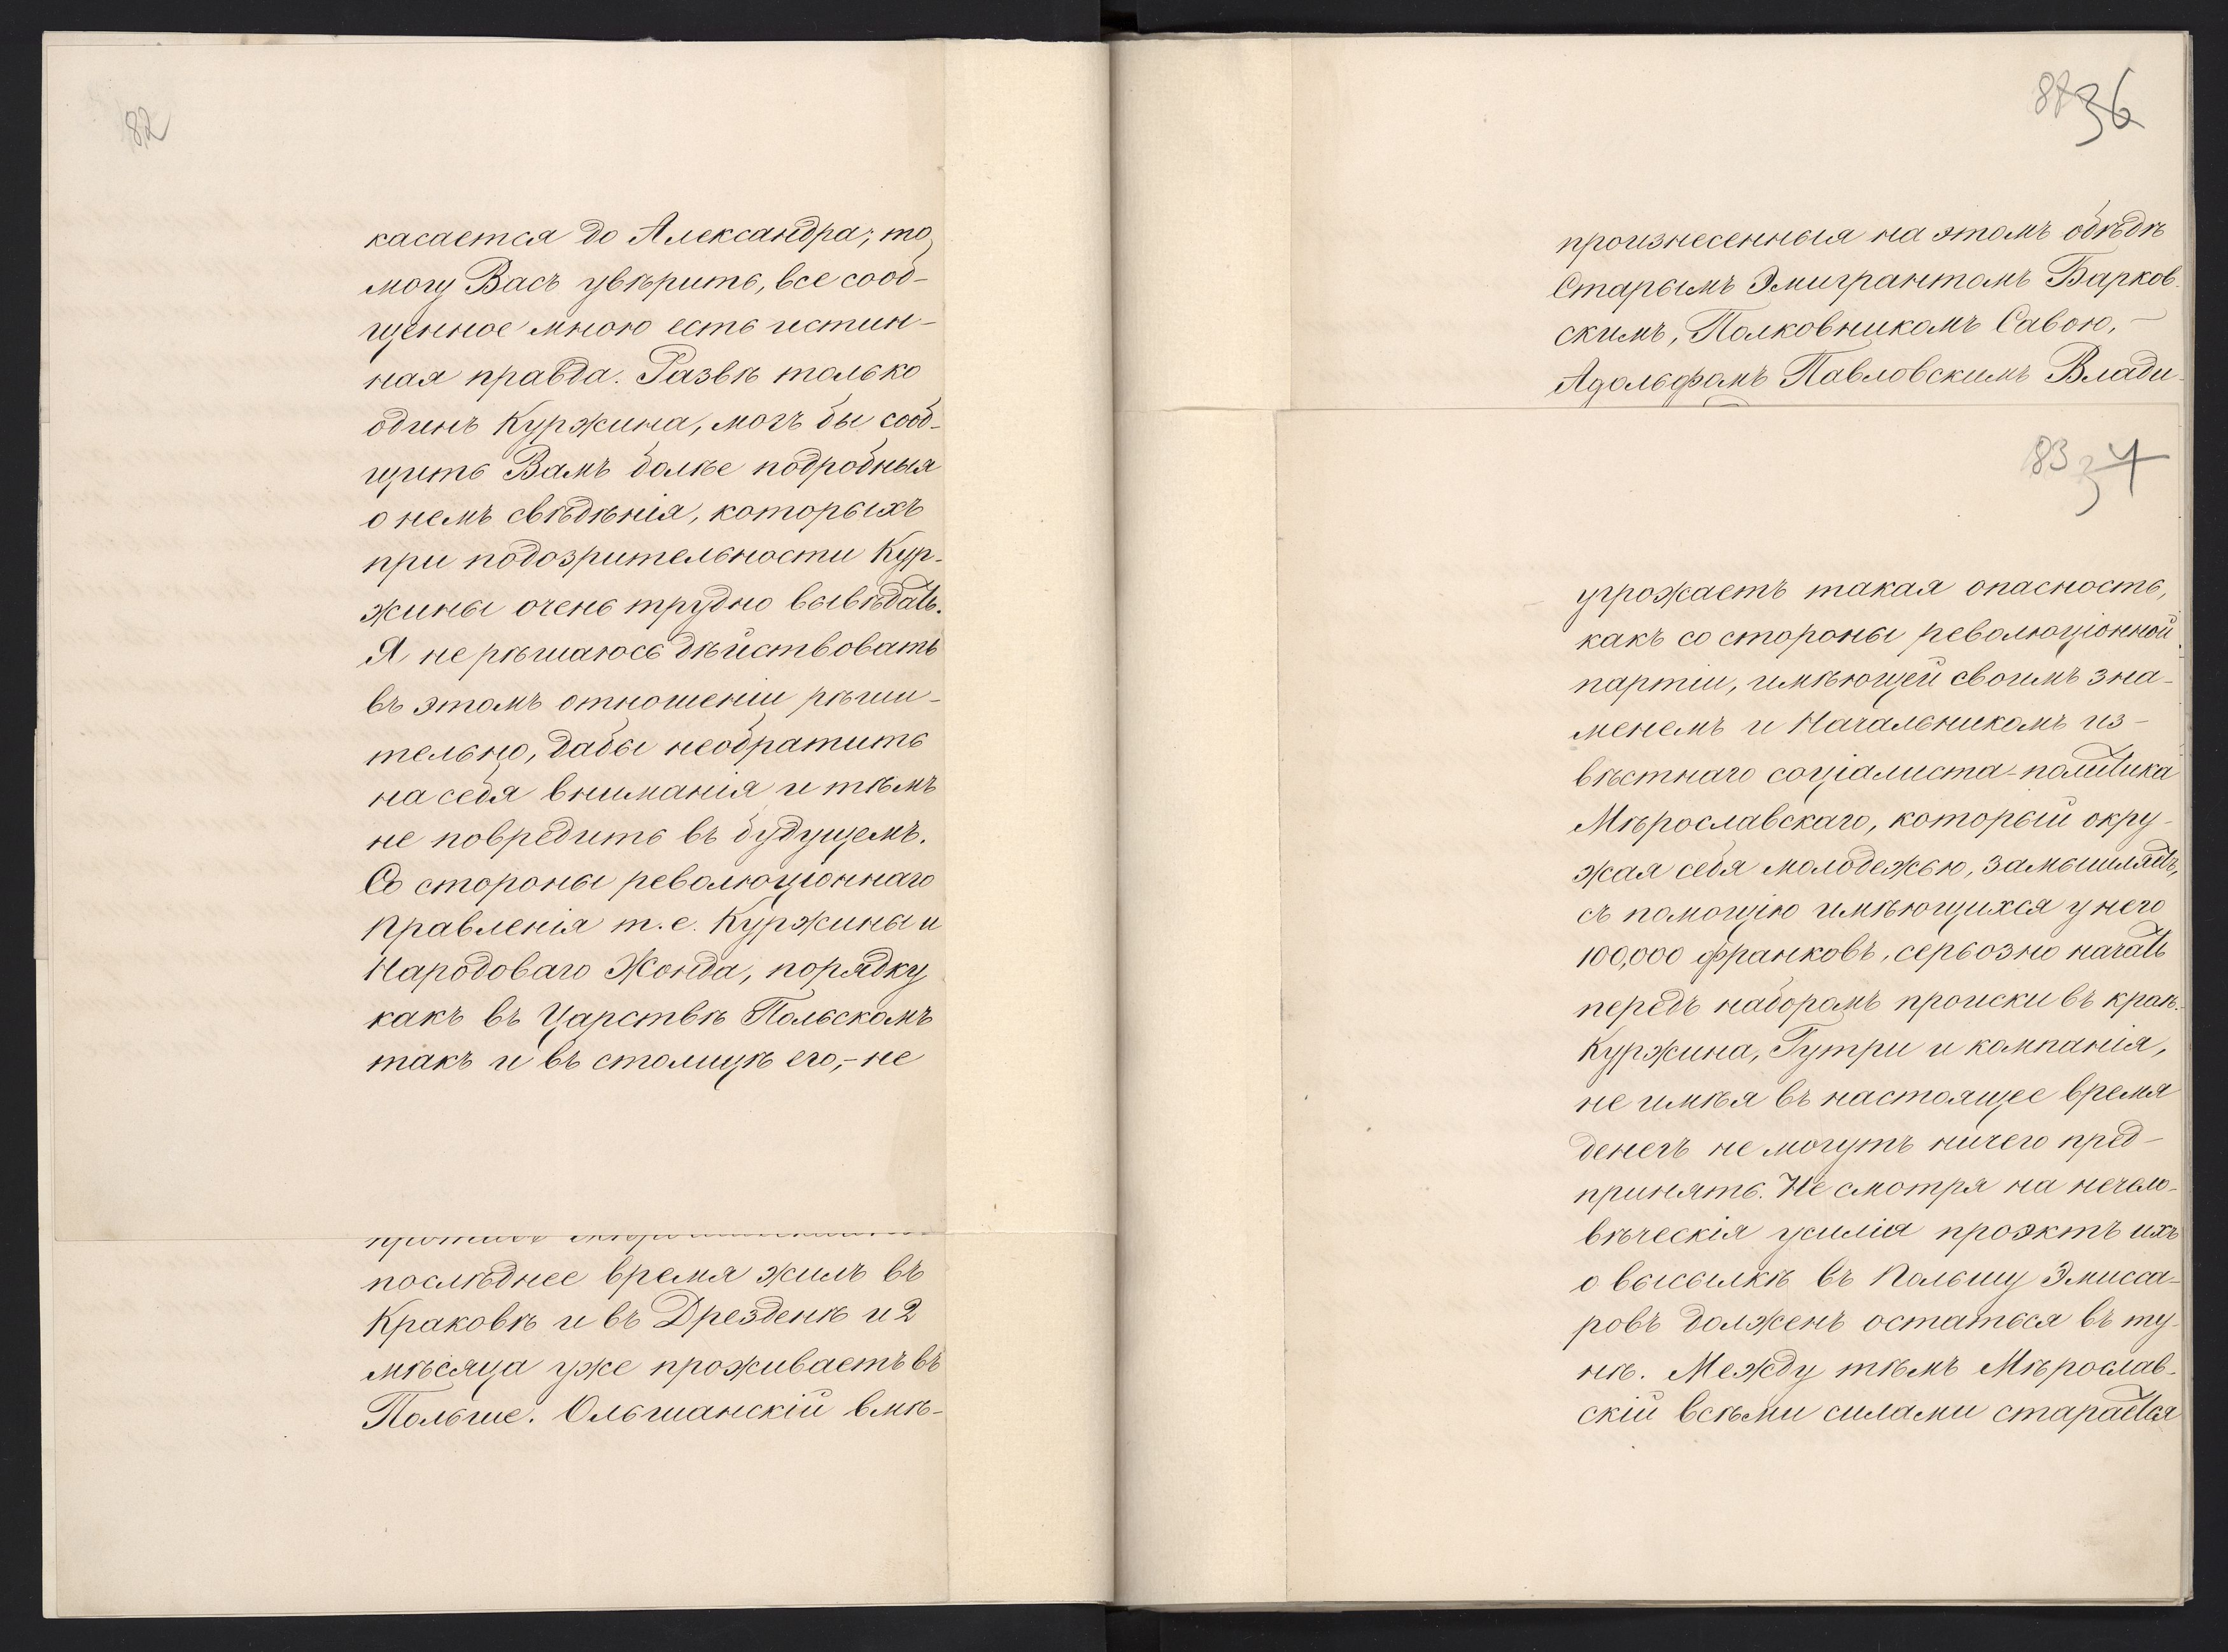 82
касается до Александра, то
могу Васъ увѣрить, все сооб-
щенное мною есть истин-
ная правда. Развѣ только
одинъ Куржина, могъ бы сооб-
щить Вамъ болѣе подробныя
о немъ свѣдѣнія, которыхъ
при подозрительности Кур-
жины очень трудно вывѣдать.
Я не рѣшаюсь дѣйствовать
въ этомъ отношеніи рѣши-
тельно, дабы необратить
на себя вниманія и тѣмъ
не повредить въ будущемъ.
Со стороны революціоннаго
Правленія т.е. Куржины и
Народоваго Жонда, порядку
какъ въ Царствѣ Польскомъ
такъ и въ столицѣ его,- не
послѣднее время жилъ въ
Краковѣ и въ Дрезденѣ и 2
мѣсяца уже проживаетъ въ
Польше. Ольшанскій вмѣ-
36
произнесенныя на этомъ обѣдѣ
Старымъ Эмигрантомъ Барков-
скимъ, Полковникомъ Савою, -
Адольфомъ Павловскимъ Влади-
83 34
угрожаетъ такая опасность,
какъ со стороны революціонной
партіи, имѣющей своимъ зна-
менемъ и Начальникомъ из-
вѣстнаго соціалиста-политика
Мѣрославскаго, который окру-
жая себя молодежью, замышляетъ,
съ помощію имѣющихся у него
100,000 франковъ, серьозно начать
передъ наборомъ происки въ краѣ.
Куржина, Гутри и компанія,
не имѣя въ настоящее время
денегъ не могутъ ничего пред-
принять. Не смотря на нечело-
вѣческія усилія проэктъ ихъ
о высылкѣ въ Польшу Эмисса-
ровъ долженъ остаться въ ту-
нѣ. Между тѣмъ Мѣрослав-
скій всѣми силами старается